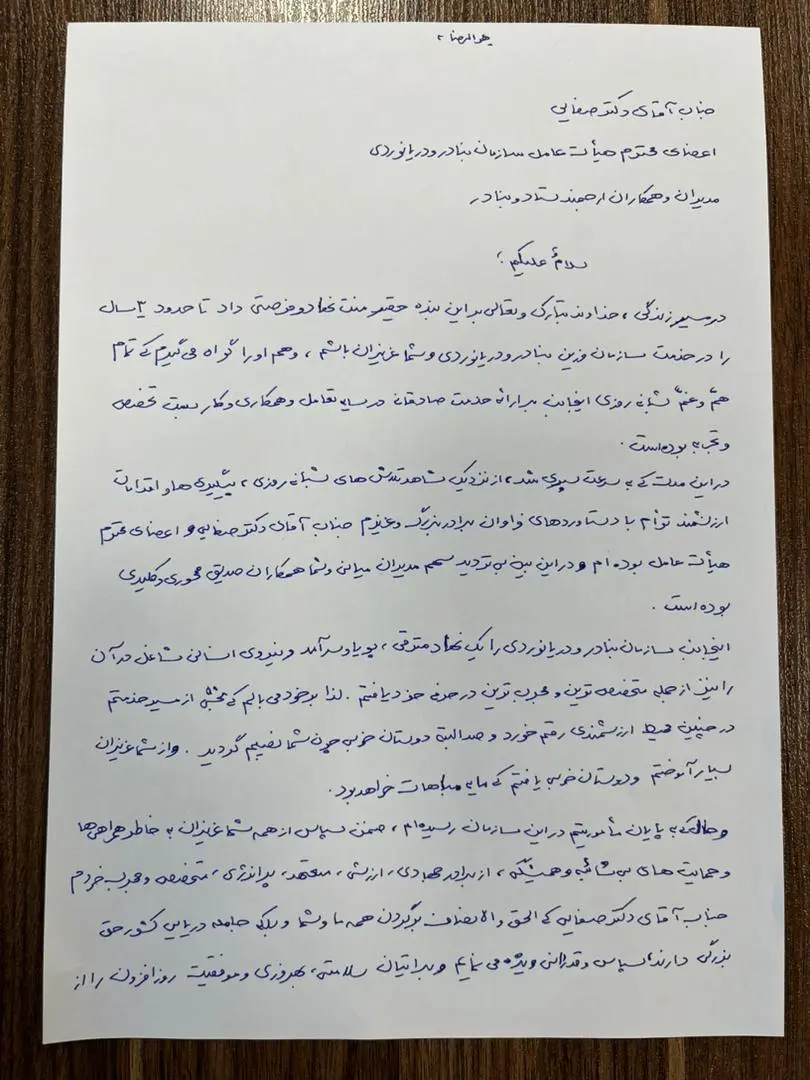 هوالرضا
جناب آقای دکتر صفایی
اعضای محترم هیأت عامل سازمان بنادر و دریانوردی
مدیران و همکاران ارجمند ستاد و بنادر
سلامٌ علیکم؛
در مسیر زندگی، خداوند تبارک و تعالی بر این بنده حقیر منت نهاد و فرصتی داد تا حدود ۳ سال
را در خدمت سازمان وزین بنادر و دریانوردی و شما عزیزان باشم، و هم او را گواه می گیرم که تمام
همّ و غمّ شبانه روزی اینجانب برارائه خدمت صادقانه در سایه تعامل و همکاری و کار بست تخصص
و تجربه بوده است.
در این مدت که به سرعت سپری شد، از نزدیک شاهد تلاش های شبانه روزی، پیگیری ها و اقدامات
ارزشمند توأم با دستاوردهای فراوان برادر بزرگ و عزیزم جناب آقای دکتر صفایی و اعضای محترم
هیأت عامل بوده ام و در این بین بی تردید سهم مدیران میانی و شما همکاران صدیق محوری و کلیدی
بوده است.
اینجانب سازمان بنادر و دریانوردی را یک نهاد مترقی، پویا و سرآمد و نیروی انسانی شاغل در آن
را نیز از جمله متخصص ترین و مجرب ترین در حوزه خود یافتم. لذا بر خود می بالم که بخشی از مسیر خدمتم
در چنین محیط ارزشمندی رقم خورد و صد البته دوستان خوبی چون شما نصیبم گردید. و از شما عزیزان
بسیار آموختم و دوستان خوبی یافتم که مایه مباهات خواهد بود.
و حال که به پایان مأموریتم در این سازمان رسیده ام، ضمن سپاس از همه شما عزیزان به خاطر همراهی ها
و حمایت های بی شائبه و همیشگی، از برادر جهادی، ارزشی، متعهد، پرانرژی، متخصص و مجرب خودم
جناب آقای دکتر صفایی که الحق و الانصاف بر گردن همه ما و شما و بلکه جامعه دریایی کشور حق
بزرگی دارند، سپاس و قدردانی ویژه می نمایم و برایتان سلامتی، بهروزی و موفقیت روزافزون را از